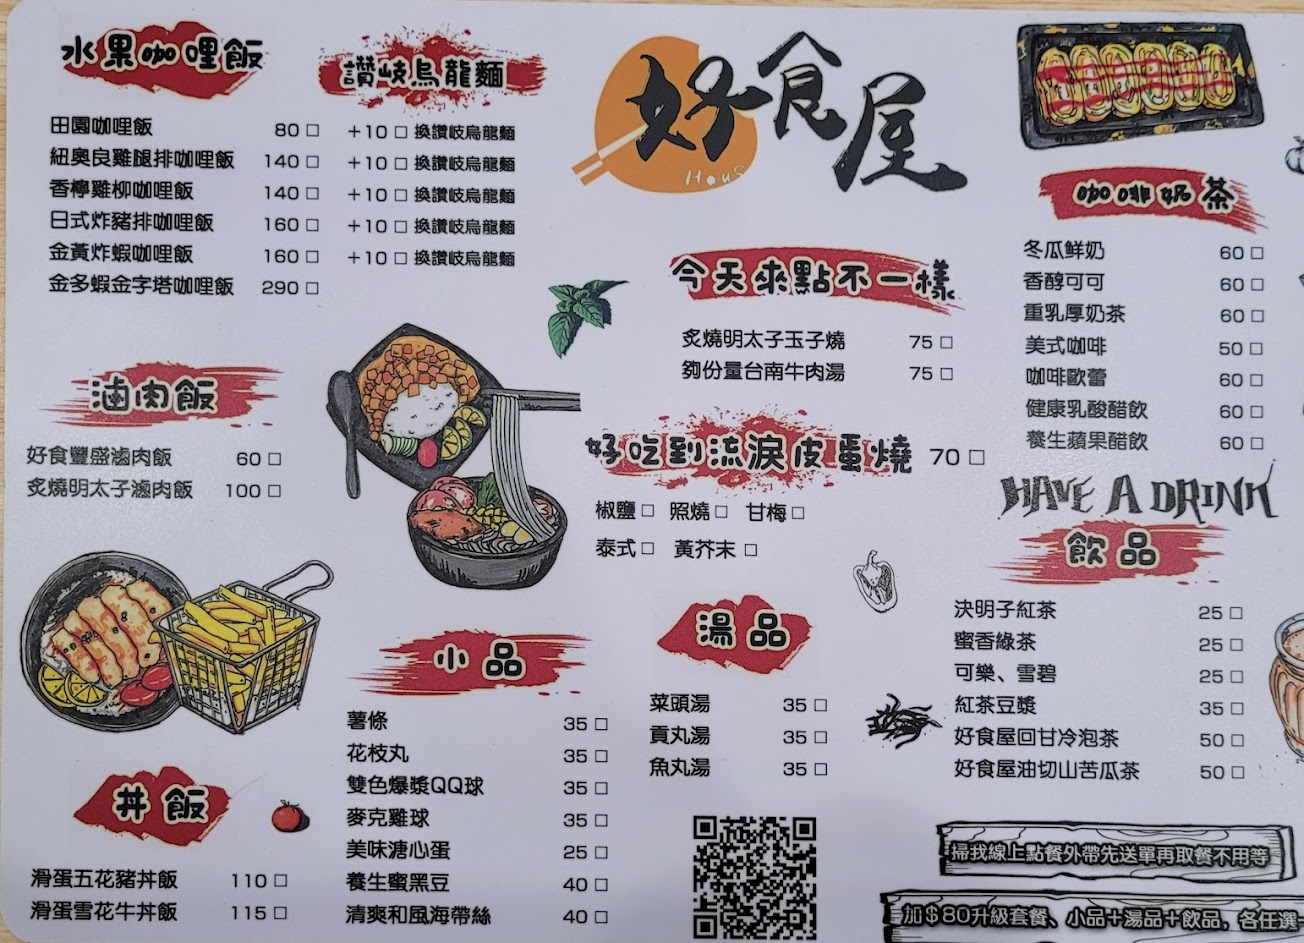 水果咖哩飯
田園咖哩飯 80 □
紐奧良雞腿排咖哩飯 140 □
香檸雞柳咖哩飯 140 □
日式炸豬排咖哩飯 160 □
金黃炸蝦咖哩飯 160 □
金多蝦金字塔咖哩飯 290 □
讚岐烏龍麵
+10 □ 換讚岐烏龍麵
+10 □ 換讚岐烏龍麵
+10 □ 換讚岐烏龍麵
+10 □ 換讚岐烏龍麵
+10 □ 換讚岐烏龍麵
好食屋
滷肉飯
好食豐盛滷肉飯 60 □
炙燒明太子滷肉飯 100 □
丼飯
滑蛋五花豬丼飯 110 □
滑蛋雪花牛丼飯 115 □
小品
薯條 35 □
花枝丸 35 □
雙色爆漿QQ球 35 □
麥克雞球 35 □
美味溏心蛋 25 □
養生蜜黑豆 40 □
清爽和風海帶絲 40 □
今天來點不一樣
炙燒明太子玉子燒 75 □
夠份量台南牛肉湯 75 □
好吃到流淚皮蛋燒 70 □
椒鹽 □ 照燒 □ 甘梅 □
泰式 □ 黃芥末 □
湯品
菜頭湯 35 □
貢丸湯 35 □
魚丸湯 35 □
咖啡奶茶
冬瓜鮮奶 60 □
香醇可可 60 □
重乳厚奶茶 60 □
美式咖啡 50 □
咖啡歐蕾 60 □
健康乳酸醋飲 60 □
養生蘋果醋飲 60 □
HAVE A DRINK
飲品
決明子紅茶 25 □
蜜香綠茶 25 □
可樂、雪碧 25 □
紅茶豆漿 35 □
好食屋回甘冷泡茶 50 □
好食屋油切山苦瓜茶 50 □
掃我線上點餐外帶先送單再取餐不用等
加$80升級套餐、小品+湯品+飲品,各任選一